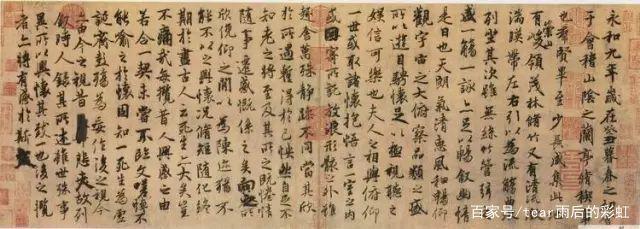 永和九年歲在癸丑暮春之初
于會稽山陰之蘭亭脩禊
也群賢畢至少長咸集此
有崇山峻領茂林脩竹又有清流
湍暎帶左右引以為流觴
列坐其次雖無絲竹管弦
盛一觴一詠亦足以暢敘幽情
是日也天朗氣清惠風和暢仰
觀宇宙之大俯察品類之盛
所以遊目騁懷足以極視聽之
娛信可樂也夫人之相與俯仰
一世或取諸懷抱悟言一室之內
或因寄所託放浪形骸之外雖
趣舍萬殊靜躁不同當其欣
於所遇暫得於己快然自足不
知老之將至及其所之既惓情
隨事遷感慨係之矣向之所
欣俛仰之閒以為陳迹猶不
能不以之興懷況脩短隨化終
期於盡古人云死生亦大矣豈
不痛哉每攬昔人興感之由
若合一契未嘗不臨文嗟悼不
能喻之於懷固知一死生為虛
誕齊彭殤為妄作後之視今
亦由今之視昔悲夫故列
敘時人錄其所述雖世殊事
異所以興懷其致一也後之攬
者亦將有感於斯文
百家号/tear雨后的彩虹